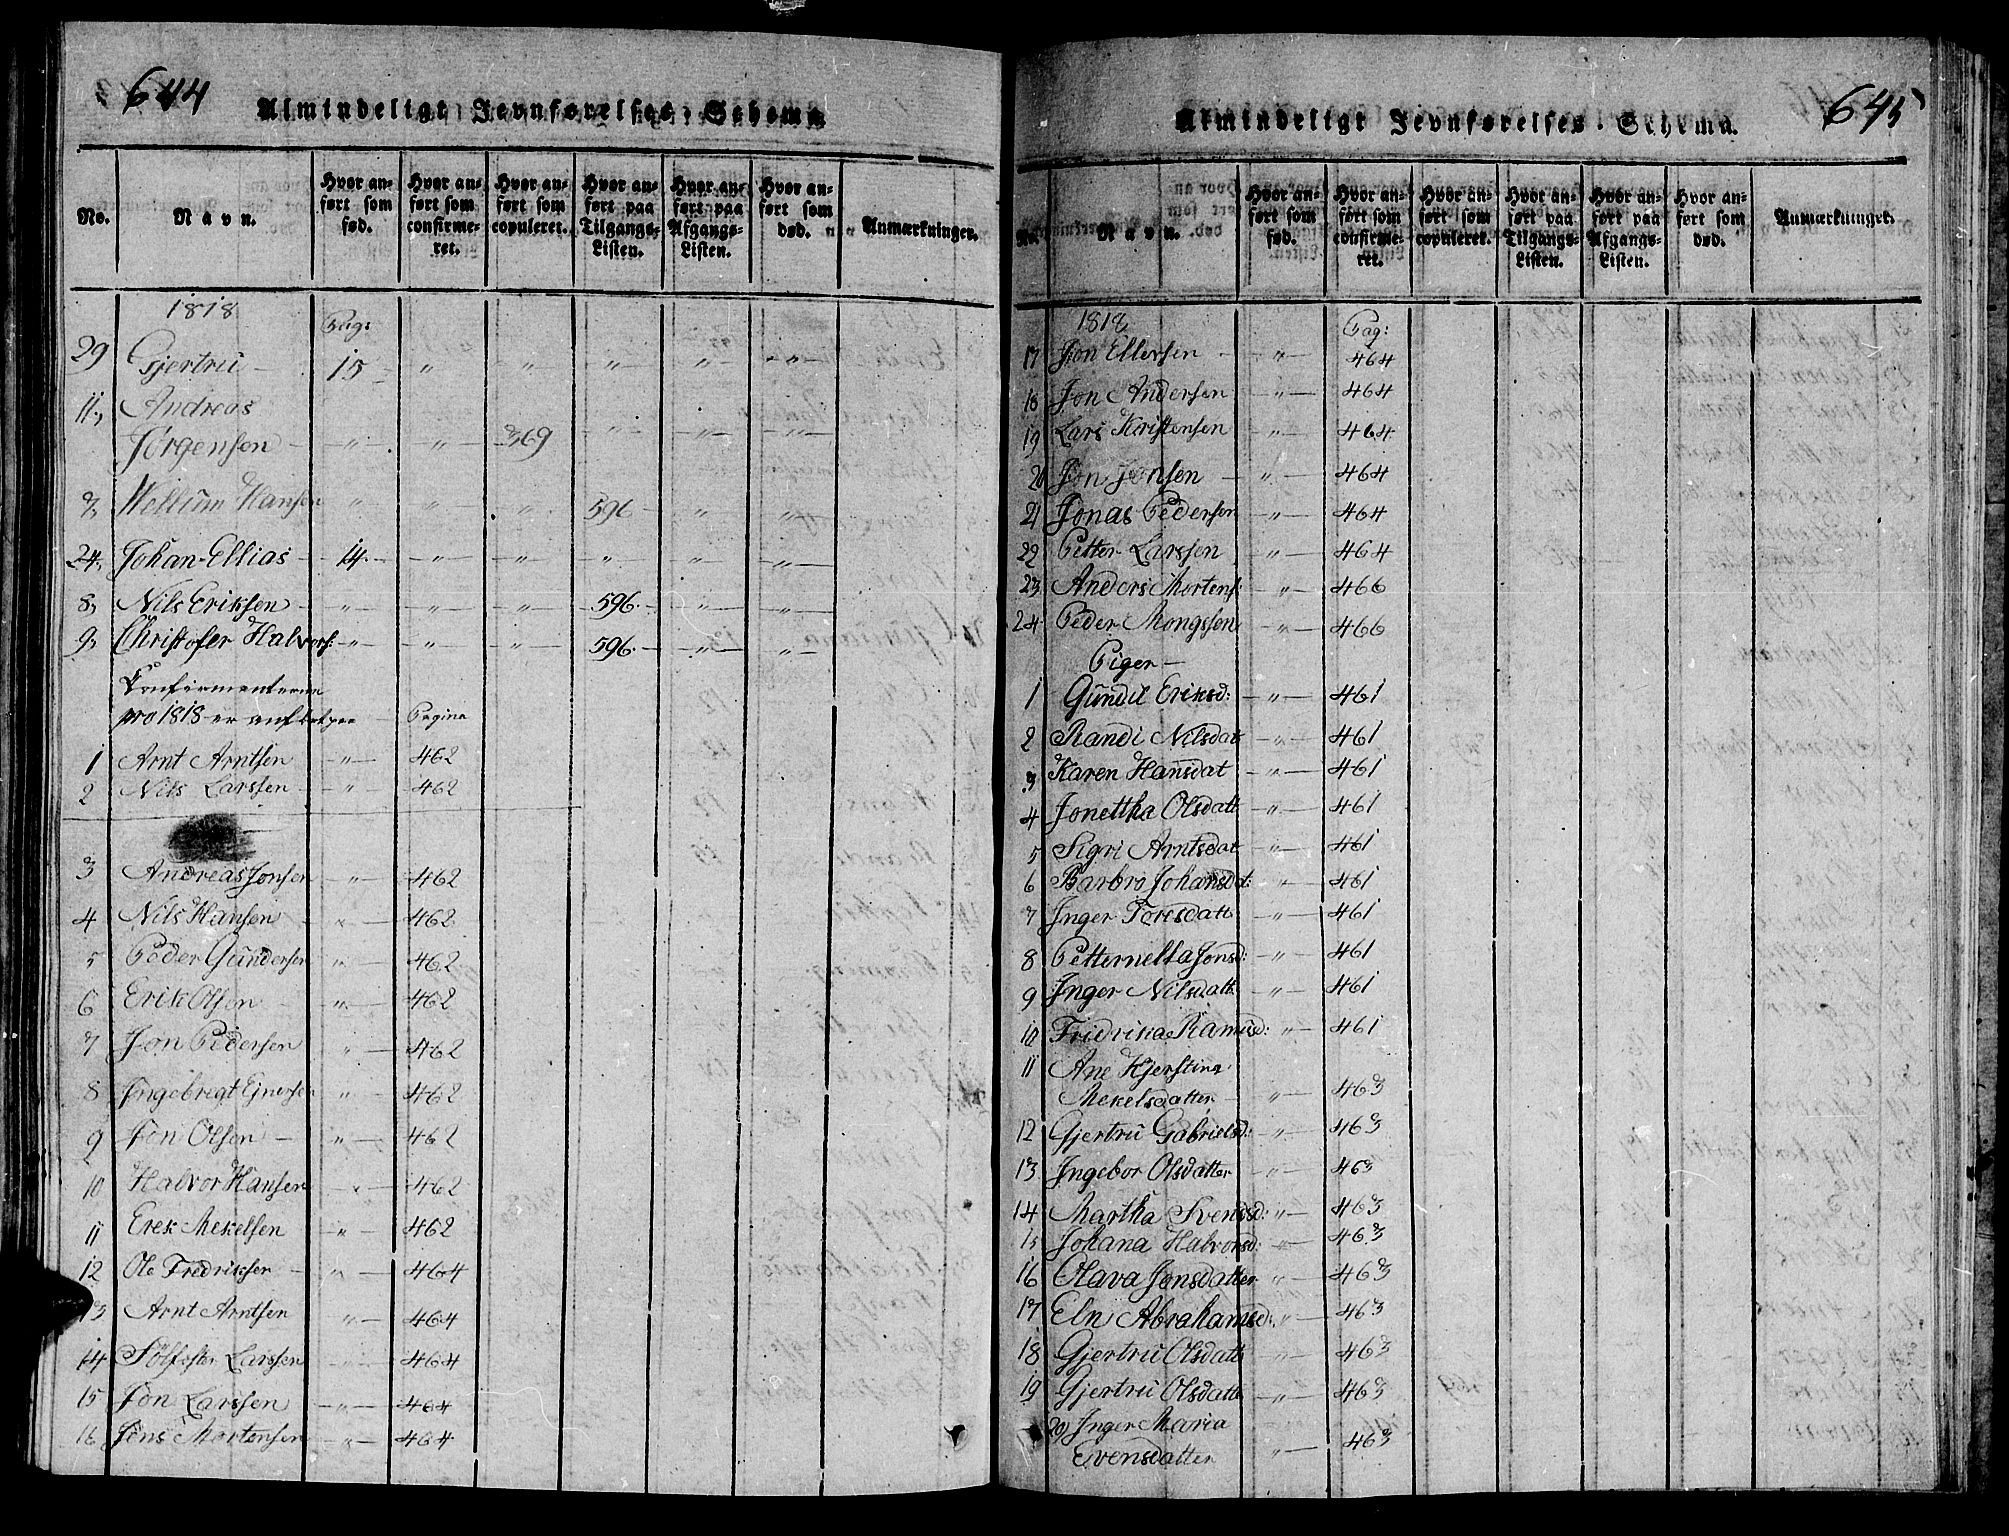 644
Almindeligt Jevnførelses-Schema
No.
Navn.
Hvor anført som fød.
Hvor anført som confirmeret.
Hvor anført som copuleret.
Hvor anført paa Tilgangs-Listen.
Hvor anført paa Afgangs-Listen.
Hvor anført som død.
Anmærkninger.
1818
Pag:
29 Gjertru — 15 - " " " " "
11, Andreas
Jørgensen — " — " — 369 " — " — " —
7, Wellum Hansen " " — " 596 — " — " —
24, Johan-Ellias — 14. — " — " — " " — " —
8, Nils Eriksen — " — " — " — 596. — " — " —
9, Christofer Halvors: — " — " — " — 596. — " — " —
Confirmenterne
pro 1818 er — Pagina
1 Arnt Arntsen — " — 462
2 Nils Larssen — " — 462
3 Andreas Jonsen — " — 462
4 Nils Hansen — " — 462
5 Peder Gundersen " — 462
6 Erik Olsen — " — 462
7 Jon Pedersen " — 462
8 Ingebregt Ejnersen " — 462
9 Jon Olsen — " — 462
10 Halvor Hansen — " — 462
11 Erek Mekelsen — " — 462
12 Ole Fredriksen — " — 464
13 Arnt Arntsen " — 464
14 Sølfester Larssen " — 464
15 Jon Larssen — " — 464
16 Jens Mortensen — " — 464
645
Almindeligt Jevnførelses-Schema.
No.
Navn.
Hvor anført som fød.
Hvor anført som confirmeret.
Hvor anført som copuleret.
Hvor anført paa Tilgangs-Listen.
Hvor anført paa Afgangs-Listen.
Hvor anført som død.
Anmærkninger.
1818
Pag:
17 Jon Ellersen — " — 464
18 Jon Andersen — " — 464
19 Lars Kristensen — " — 464
20 Jon Jonsen — " — 464
21 Jonas Pedersen — " — 464
22 Petter Larssen " — 464
23 Anders Mortens: " — 466
24 Peder Mongssøn " — 466
Piger —
1 Gundil Eriksd: — " — 461
2 Randi Nilsdat — " — 461
3 Karen Hansdat — " — 461
4 Jonettha Olsdatt — " — 461
5 Sigri Arntsdat — " — 461
6 Barbro Johansdat: " — 461
7 Inger Toresdatt — " — 461
8 Petternella Jonsd: — " — 461
9 Inger Nilsdatt — " — 461
10 Fridrika Ramusd: " — 461
11 Ane Kjerstina
Mekelsdatter — " — 463
12 Gjertru Gabrielsd: " — 463
13 Ingebor Olsdatter " — 463
14 Martha Svendsd: " — 463
15 Johana Halvorsd: " — 463
16 Olava Jonsdatter " — 463
17 Eln Abrahamsd: " — 463
18 Gjertru Olsdatt " — 463
19 Gjertru Olsdatt " — 463
20 Inger Maria
Evensdatter " — 463